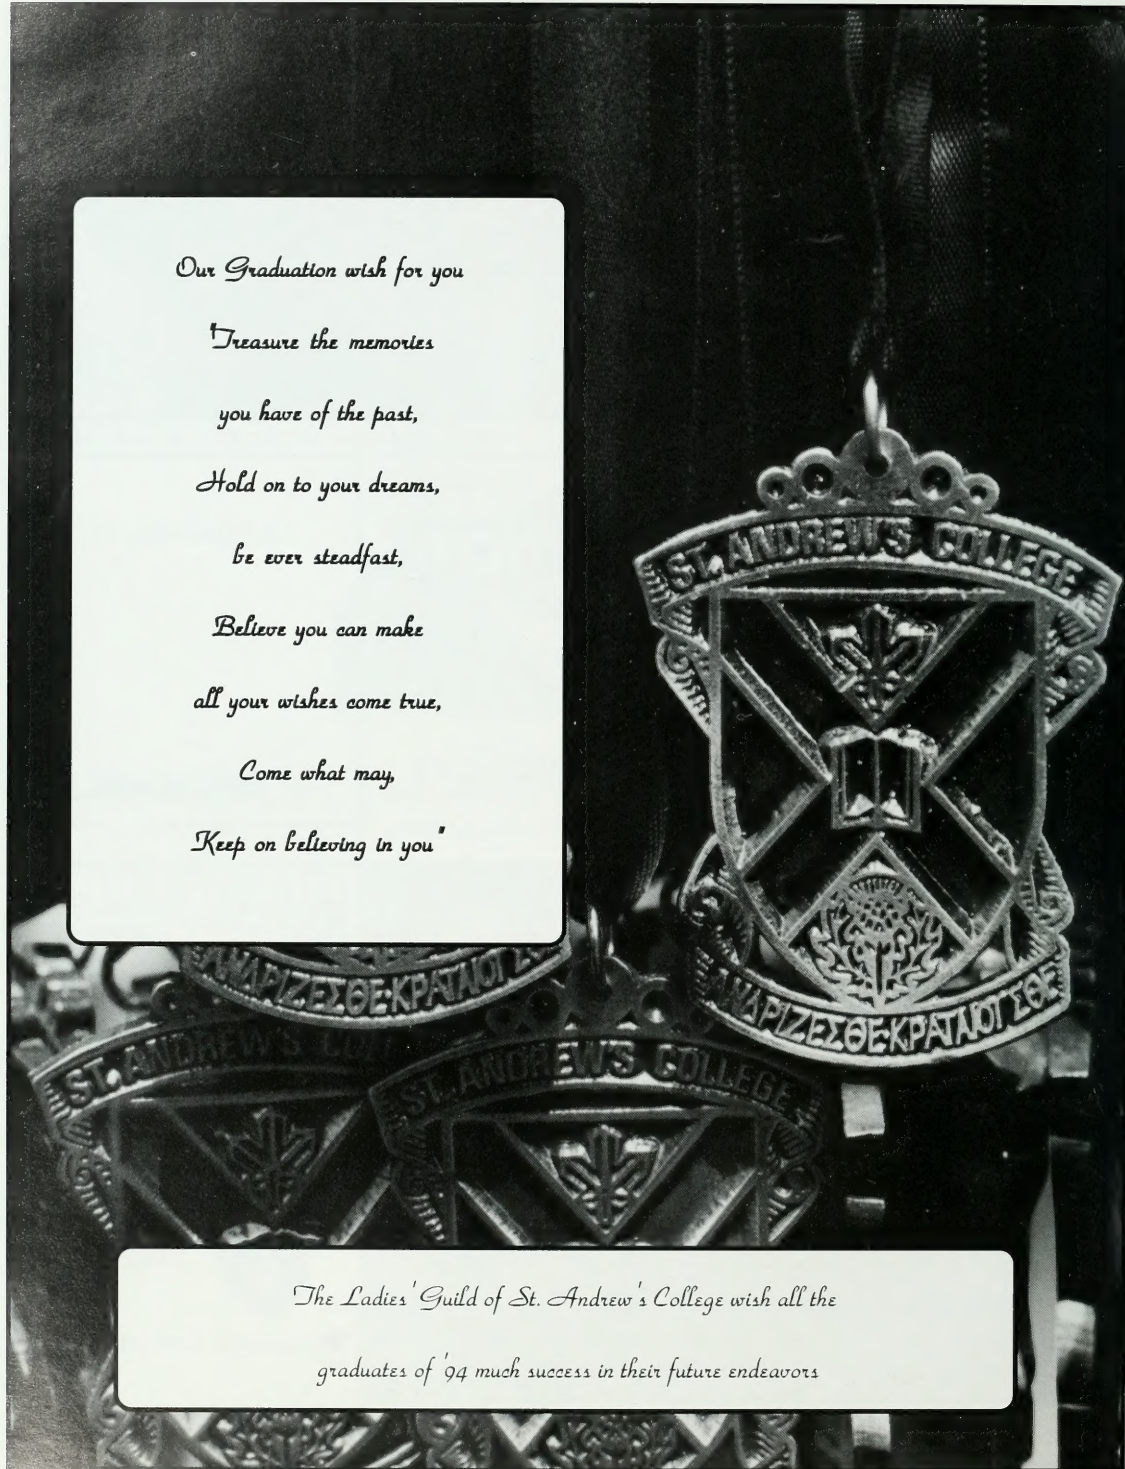 Our Graduation wish for you
"Treasure the memories
you have of the past,
Hold on to your dreams,
be ever steadfast,
Believe you can make
all your wishes come true,
Come what may,
Keep on believing in you"
ST. ANDREW'S COLLEGE
ΑΝΔΡΙΖΕΣΘΕ·ΚΡΑΤΑΙΟΥΣΘΕ
ΑΝΔΡΙΖΕΣΘΕ·ΚΡΑΤΑΙΟΥ
ST. ANDREW'S COLL
ST. ANDREW'S COLLEGE
The Ladies' Guild of St. Andrew's College wish all the
graduates of '94 much success in their future endeavors